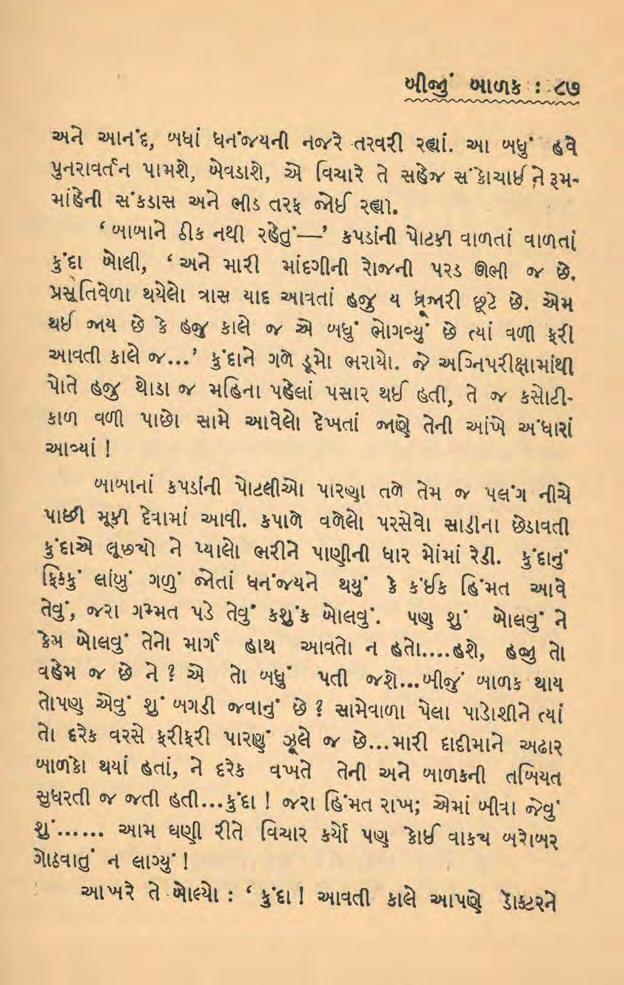 બીજું બાળક : ૮૭
અને આનંદ, બધાં ધનંજયની નજરે તરવરી રહ્યાં. આ બધું હવે
પુનરાવર્તન પામશે, બેવડાશે, એ વિચારે તે સહેજ સંકોચાઈ ને રૂમ-
માંહેની સંકડાસ અને ભીડ તરફ જોઈ રહ્યા.
‘ બાબાને ઠીક નથી રહેતું—’ કપડાંની પોટકી વાળતાં વાળતાં
કુંદા બોલી, ‘ અને મારી માંદગીની રોજની પરડ ઊભી જ છે.
પ્રસૂતિવેળા થયેલો ત્રાસ યાદ આવતાં હજુ ય ધ્રૂજારી છૂટે છે. એમ
થઈ જાય છે કે હજુ કાલે જ એ બધું ભોગવ્યું છે ત્યાં વળી ફરી
આવતી કાલે જ...’ કુંદાને ગળે ડૂમો ભરાયો. જે અગ્નિપરીક્ષામાંથી
પોતે હજુ થોડા જ મહિના પહેલાં પસાર થઈ હતી, તે જ કસોટી-
કાળ વળી પાછો સામે આવેલો દેખતાં જાણે તેની આંખે અંધારાં
આવ્યાં !
બાબાનાં કપડાંની પોટલીઓ પારણા તળે તેમ જ પલંગ નીચે
પાછી મૂકી દેવામાં આવી. કપાળે વળેલો પરસેવો સાડીના છેડાવતી
કુંદાએ લૂછ્યો ને પ્યાલો ભરીને પાણીની ધાર મોંમાં રેડી. કુંદાનું
ફિક્કું લાંબું ગળું જોતાં ધનંજયને થયું કે કંઈક હિંમત આવે
તેવું, જરા ગમ્મત પડે તેવું કશુંક બોલવું. પણ શું બોલવું ને
કેમ બોલવું તેનો માર્ગ હાથ આવતો ન હતો....હશે, હજુ તો
વહેમ જ છે ને ? એ તો બધું પતી જશે...બીજું બાળક થાય
તોપણ એવું શું બગડી જવાનું છે ? સામેવાળા પેલા પાડોશીને ત્યાં
તો દરેક વરસે ફરીફરી પારણું ઝૂલે જ છે...મારી દાદીમાને અઢાર
બાળકો થયાં હતાં, ને દરેક વખતે તેની અને બાળકની તબિયત
સુધરતી જ જતી હતી...કુંદા ! જરા હિંમત રાખ; એમાં બીવા જેવું
શું...... આમ ઘણી રીતે વિચાર કર્યો પણ કોઈ વાક્ય બરોબર
ગોઠવાતું ન લાગ્યું !
આખરે તે બોલ્યો : ‘ કુંદા ! આવતી કાલે આપણે ડૉક્ટરને